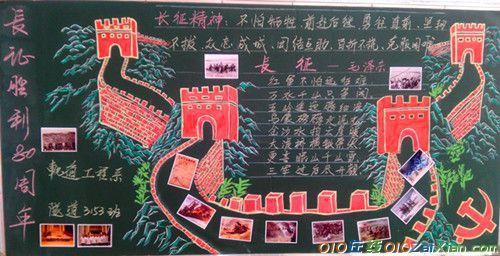 長征胜利80周年
长征精神：不怕牺牲 前赴后继 勇往直前，坚韧
不拔 众志成城，团结互助，百折不挠，克服困难
长征 — 毛泽东
红军不怕远征难
万水千山只等闲
五岭逶迤腾细浪
乌蒙磅礴走泥丸
金沙水拍云崖暖
大渡桥横铁索寒
更喜岷山千里雪
三军过后尽开颜
轨道工程系
隧道3153班
010在线010zaiXian.Com